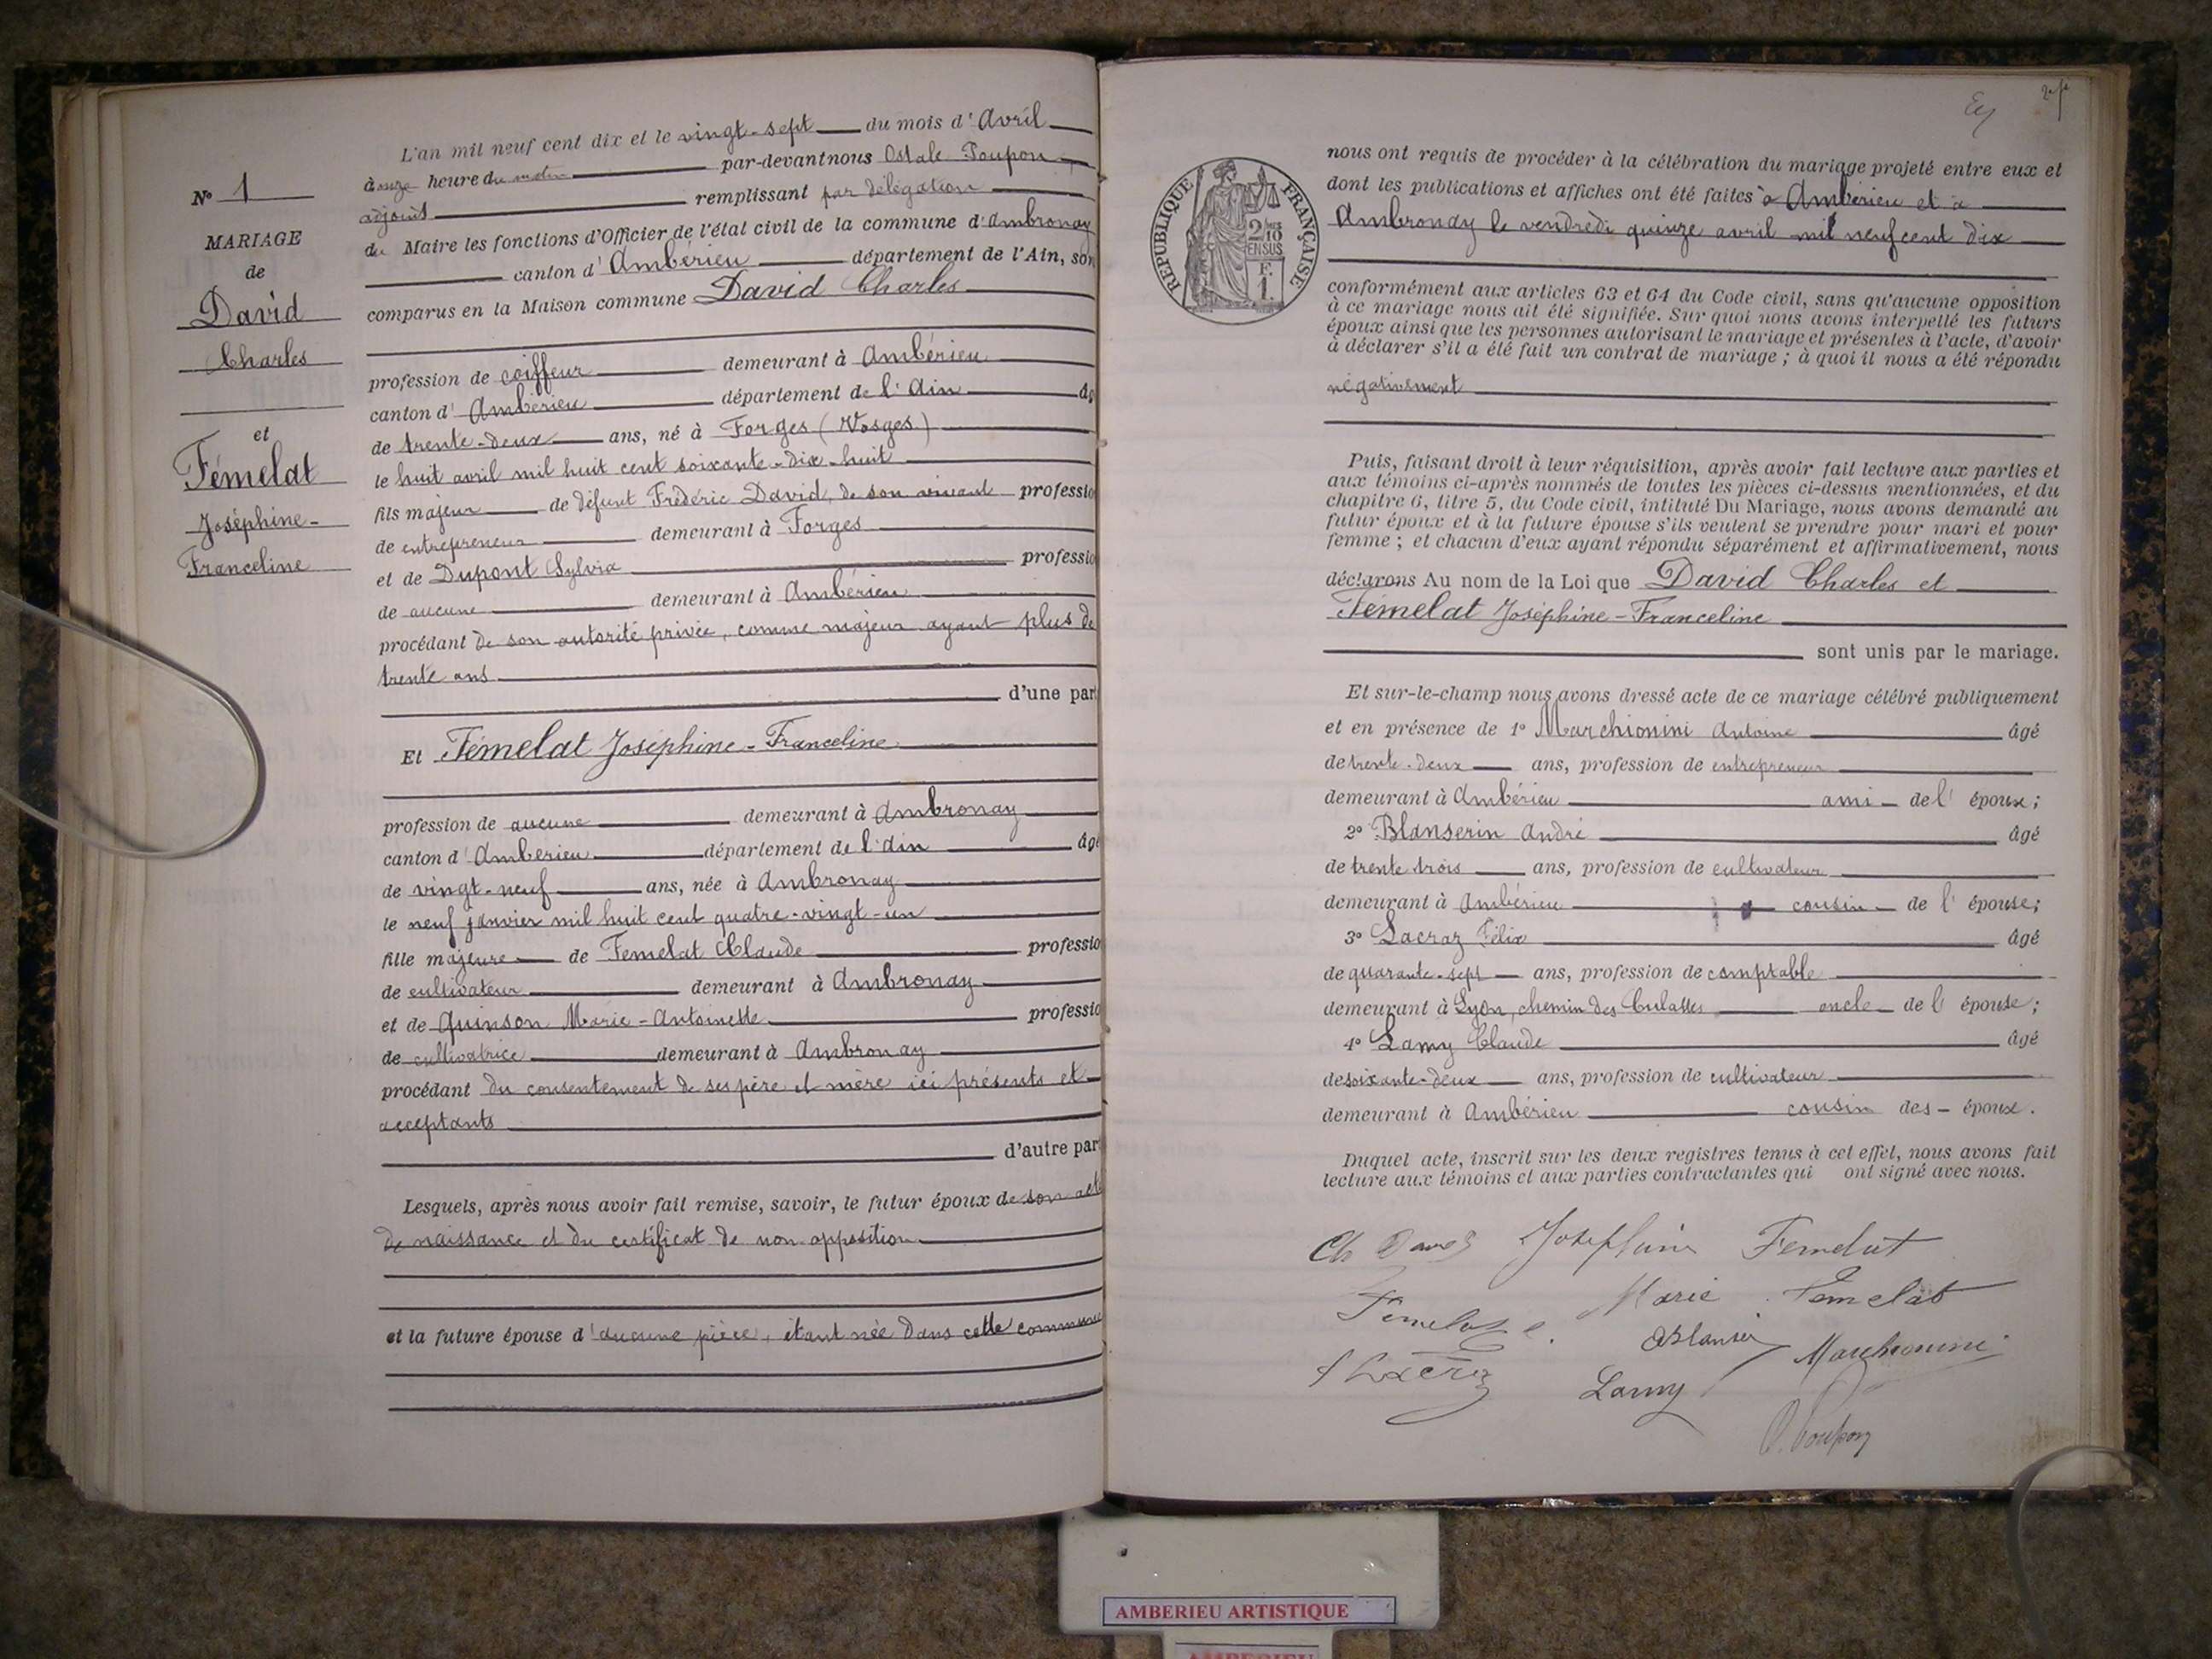 N° 1
MARIAGE
de
David
Charles
et
Fémelat
Joséphine-
Franceline
L'an mil neuf cent dix et le vingt-sept du mois d'Avril
à onze heure du matin par-devant nous Ostale Poupon
adjoint remplissant par délégation
du Maire les fonctions d'Officier de l'état civil de la commune d'Ambronay
canton d'Ambérieu département de l'Ain, son
comparus en la Maison commune David Charles
profession de coiffeur demeurant à Ambérieu
canton d'Ambérieu département de l'Ain âg
de trente-deux ans, né à Forges (Vosges)
le huit avril mil huit cent soixante-dix-huit
fils majeur de défunt Frédéric David, de son vivant professio
de entrepreneur demeurant à Forges
et de Dupont Sylvia professio
de aucune demeurant à Ambérieu
procédant de son autorité privée, comme majeur ayant plus de
trente ans
d'une part
Et Fémelat Joséphine-Franceline
profession de aucune demeurant à Ambronay
canton d'Ambérieu département de l'Ain âgé
de vingt-neuf ans, née à Ambronay
le neuf janvier mil huit cent quatre-vingt-un
fille majeure de Femelat Claude professio
de cultivateur demeurant à Ambronay
et de Quinson Marie-Antoinette professio
de cultivatrice demeurant à Ambronay
procédant du consentement de ses père et mère ici présents et
acceptants
d'autre part
Lesquels, après nous avoir fait remise, savoir, le futur époux de son acte
de naissance et du certificat de non-opposition
et la future épouse d'aucune pièce, étant née dans cette commune
RÉPUBLIQUE FRANÇAISE
2 10
EN SUS
F.
1.
nous ont requis de procéder à la célébration du mariage projeté entre eux et
dont les publications et affiches ont été faites à Ambérieu et à
Ambronay le vendredi quinze avril mil neuf cent dix
conformément aux articles 63 et 64 du Code civil, sans qu'aucune opposition
à ce mariage nous ait été signifiée. Sur quoi nous avons interpellé les futurs
époux ainsi que les personnes autorisant le mariage et présentes à l'acte, d'avoir
à déclarer s'il a été fait un contrat de mariage ; à quoi il nous a été répondu
négativement
Puis, faisant droit à leur réquisition, après avoir fait lecture aux parties et
aux témoins ci-après nommés de toutes les pièces ci-dessus mentionnées, et du
chapitre 6, titre 5, du Code civil, intitulé Du Mariage, nous avons demandé au
futur époux et à la future épouse s'ils veulent se prendre pour mari et pour
femme ; et chacun d'eux ayant répondu séparément et affirmativement, nous
déclarons Au nom de la Loi que David Charles et
Fémelat Joséphine-Franceline
sont unis par le mariage.
Et sur-le-champ nous avons dressé acte de ce mariage célébré publiquement
et en présence de 1° Marchionini Antoine âgé
de trente-deux ans, profession de entrepreneur
demeurant à Ambérieu ami de l'époux;
2° Blanserin André âgé
de trente trois ans, profession de cultivateur
demeurant à Ambérieu cousin de l'épouse;
3° Lacraz Félix âgé
de quarante-sept ans, profession de comptable
demeurant à Lyon, chemin des Culattes oncle de l'épouse;
4° Lamy Claude âgé
de soixante-deux ans, profession de cultivateur
demeurant à Ambérieu cousin des époux.
Duquel acte, inscrit sur les deux registres tenus à cet effet, nous avons fait
lecture aux témoins et aux parties contractantes qui ont signé avec nous.
Ch David Joséphine Femelat
Femelat C. Marie Femelat
Marchionini
F Lacraz Lamy
O. Poupon
AMBERIEU ARTISTIQUE
AMBERIEU